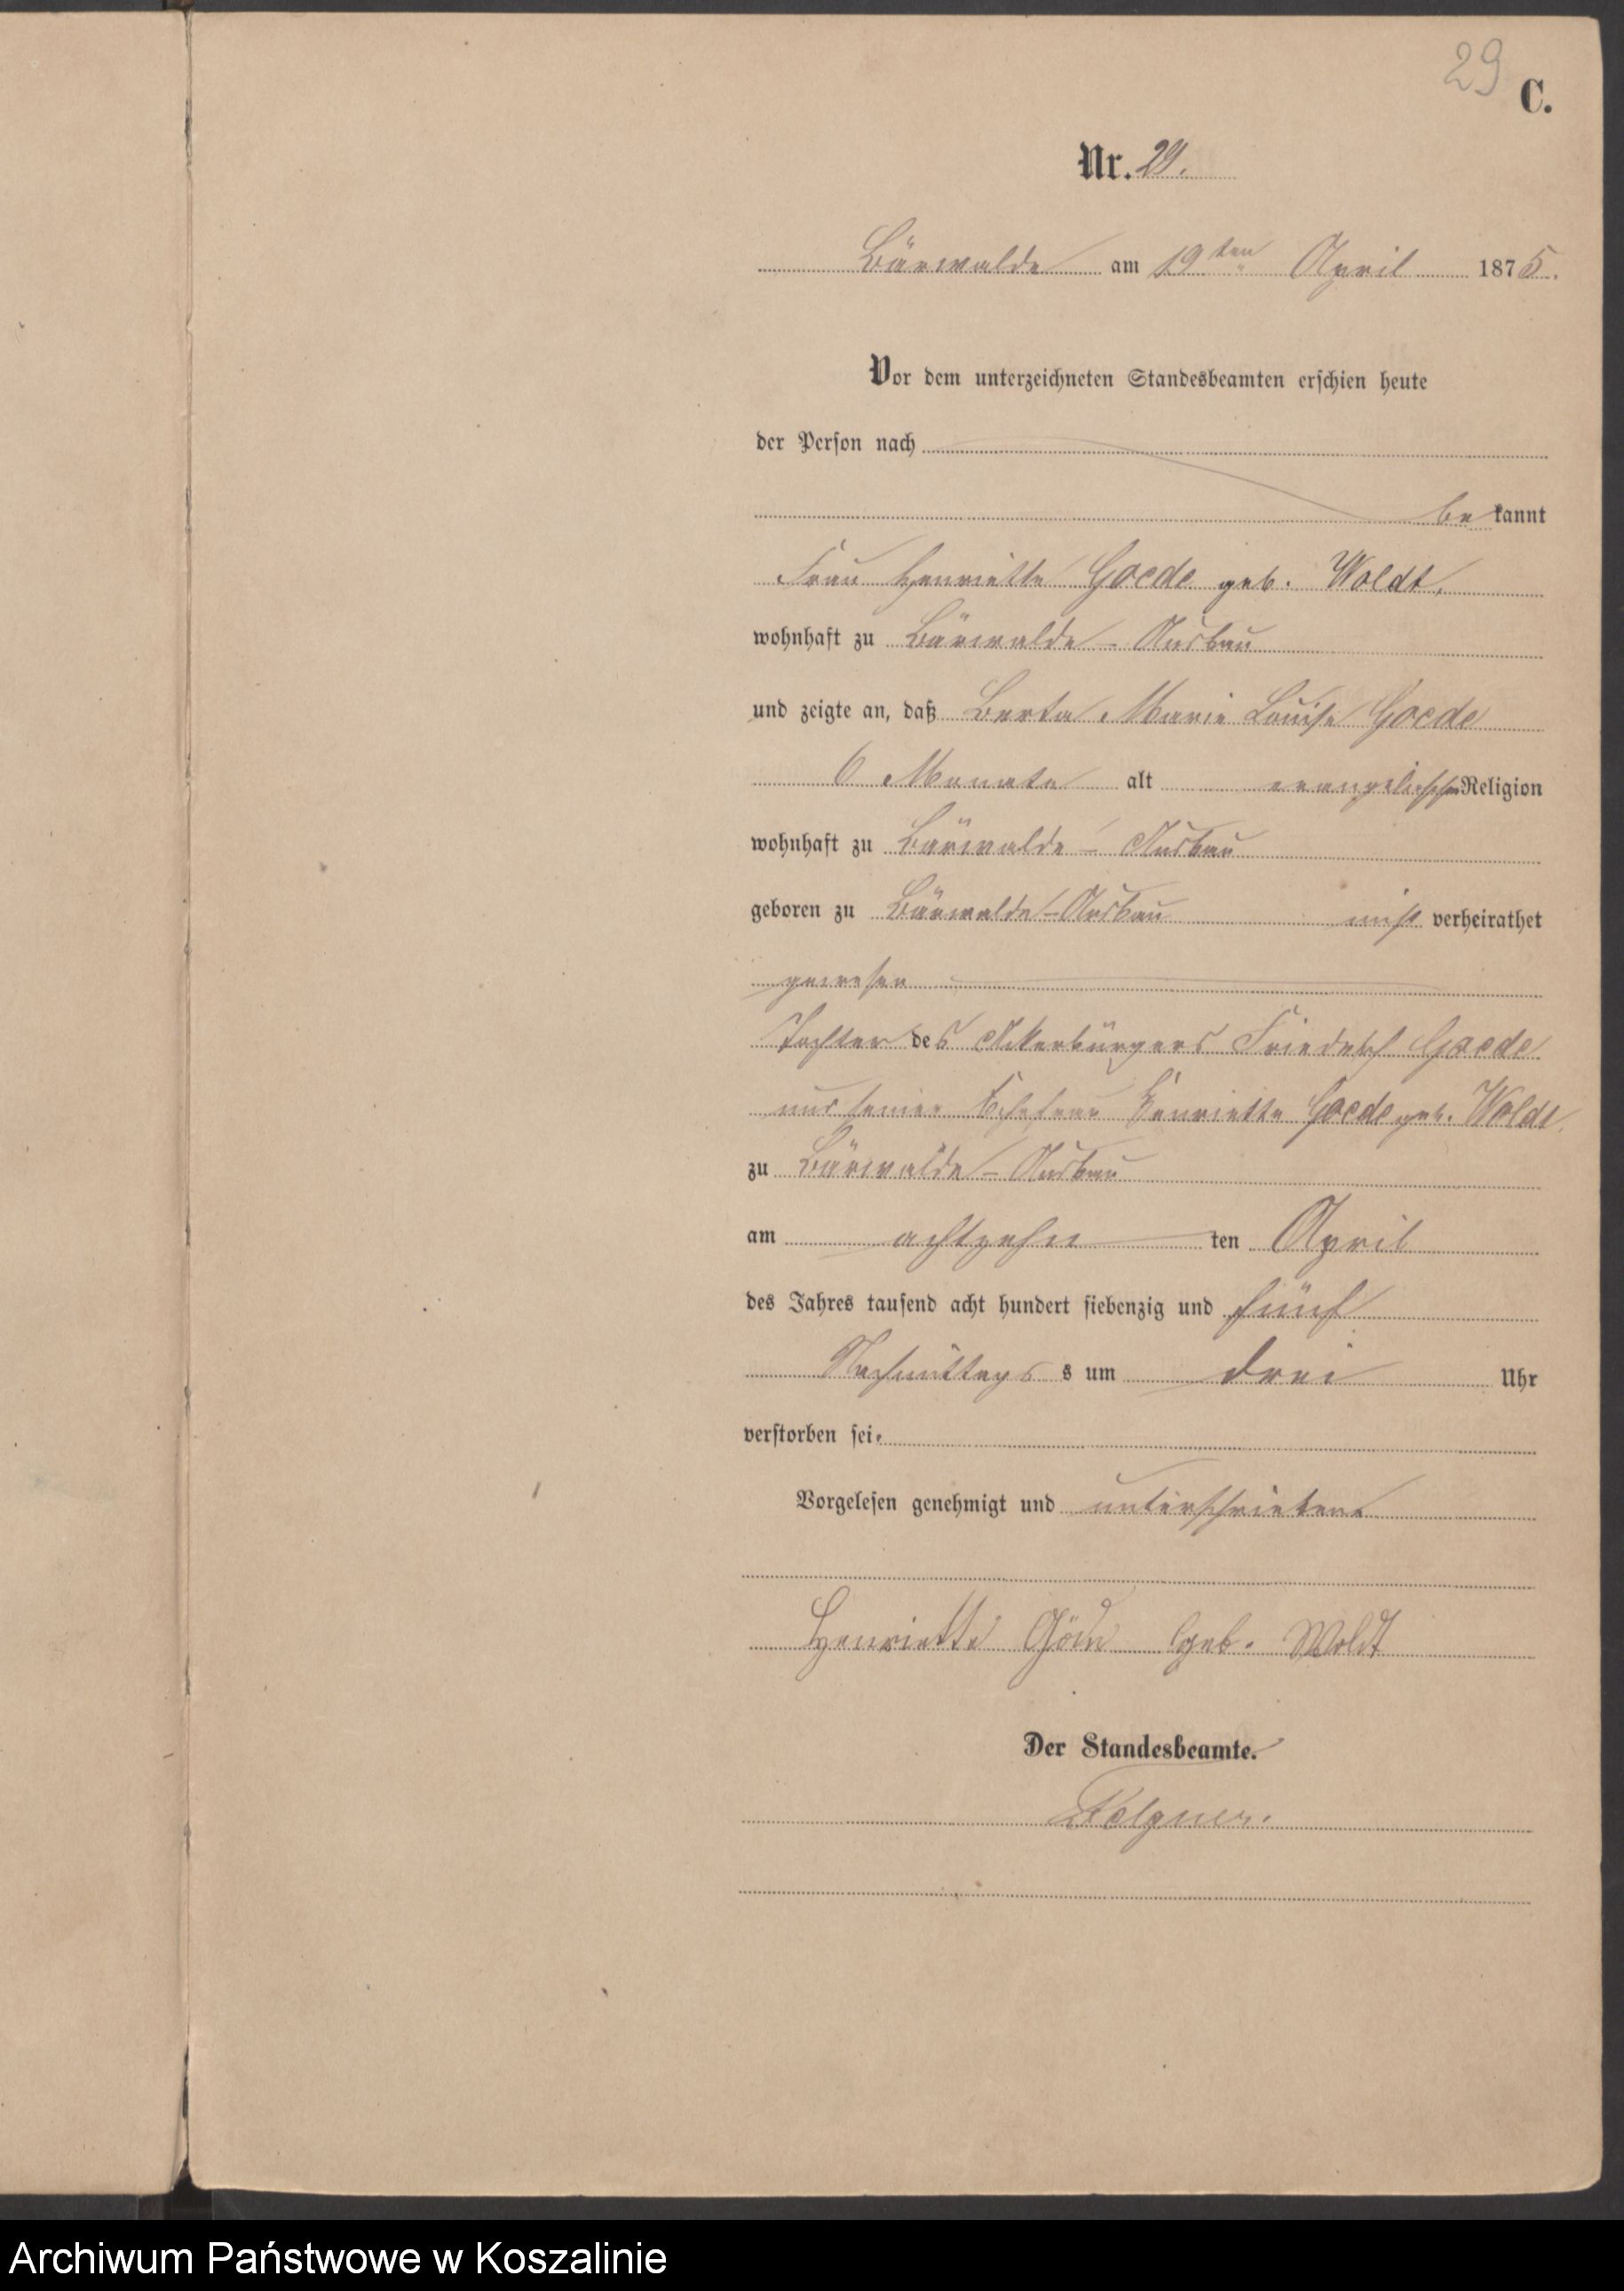 29
C.
Nr. 29.
Bärwalde am 19ten April 1875.
Vor dem unterzeichneten Standesbeamten erschien heute
der Person nach
bekannt
Frau Henriette Goede geb. Woldt,
wohnhaft zu Bärwalde-Ausbau
und zeigte an, daß Berta Marie Louise Goede
6 Monate alt evangelischer Religion
wohnhaft zu Bärwalde-Ausbau
geboren zu Bärwalde-Ausbau nicht verheirathet
gewesen
Tochter des Ackerbürgers Friedrich Goede
und seiner Ehefrau Henriette Goede geb. Woldt
zu Bärwalde-Ausbau
am achtzehn ten April
des Jahres tausend acht hundert siebenzig und fünf
Nachmittags s um drei Uhr
verstorben sei.
Vorgelesen genehmigt und unterschrieben.
Henriette geb. Woldt
Der Standesbeamte.
Archiwum Państwowe w Koszalinie